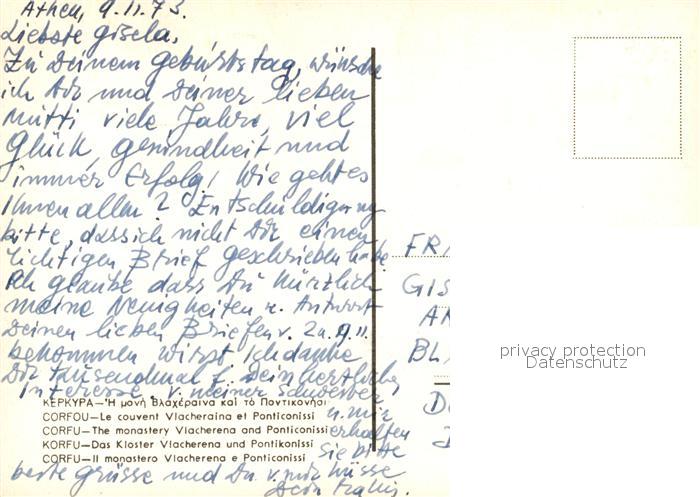 Athen, 9.11.73.
Liebste Gisela,
Zu Deinem Geburtstag, wünsche
ich Dir und Deiner lieben
Mutti, viele Jahre, viel
Glück, Gesundheit und
immer Erfolg! Wie geht es
Ihnen allen? Entschuldigung
bitte, dass ich nicht Dir einen
richtigen Brief geschrieben habe.
Ich glaube dass Du kürzlich
meine Neuigkeiten u. Antwort
Deinen lieben Briefen v. 2 u. 9.11.
bekommen wirst. Ich danke
Dir tausendmal f. Dein herzliches
Interesse. v. meiner Schwester
u. mir
erhalten
Sie bitte
beste Grüsse und Du v. mir Küsse
ΚΕΡΚΥΡΑ—Ἡ μονὴ Βλαχέραινα καὶ τὸ Ποντικονῆσι
CORFOU—Le couvent Vlacheraina et Ponticonissi
CORFU—The monastery Vlacherena and Ponticonissi
KORFU—Das Kloster Vlacherena und Pontikonissi
CORFU—Il monastero Vlacherena e Ponticonissi
FRA
GIS
AM
BL
D
privacy protection
Datenschutz